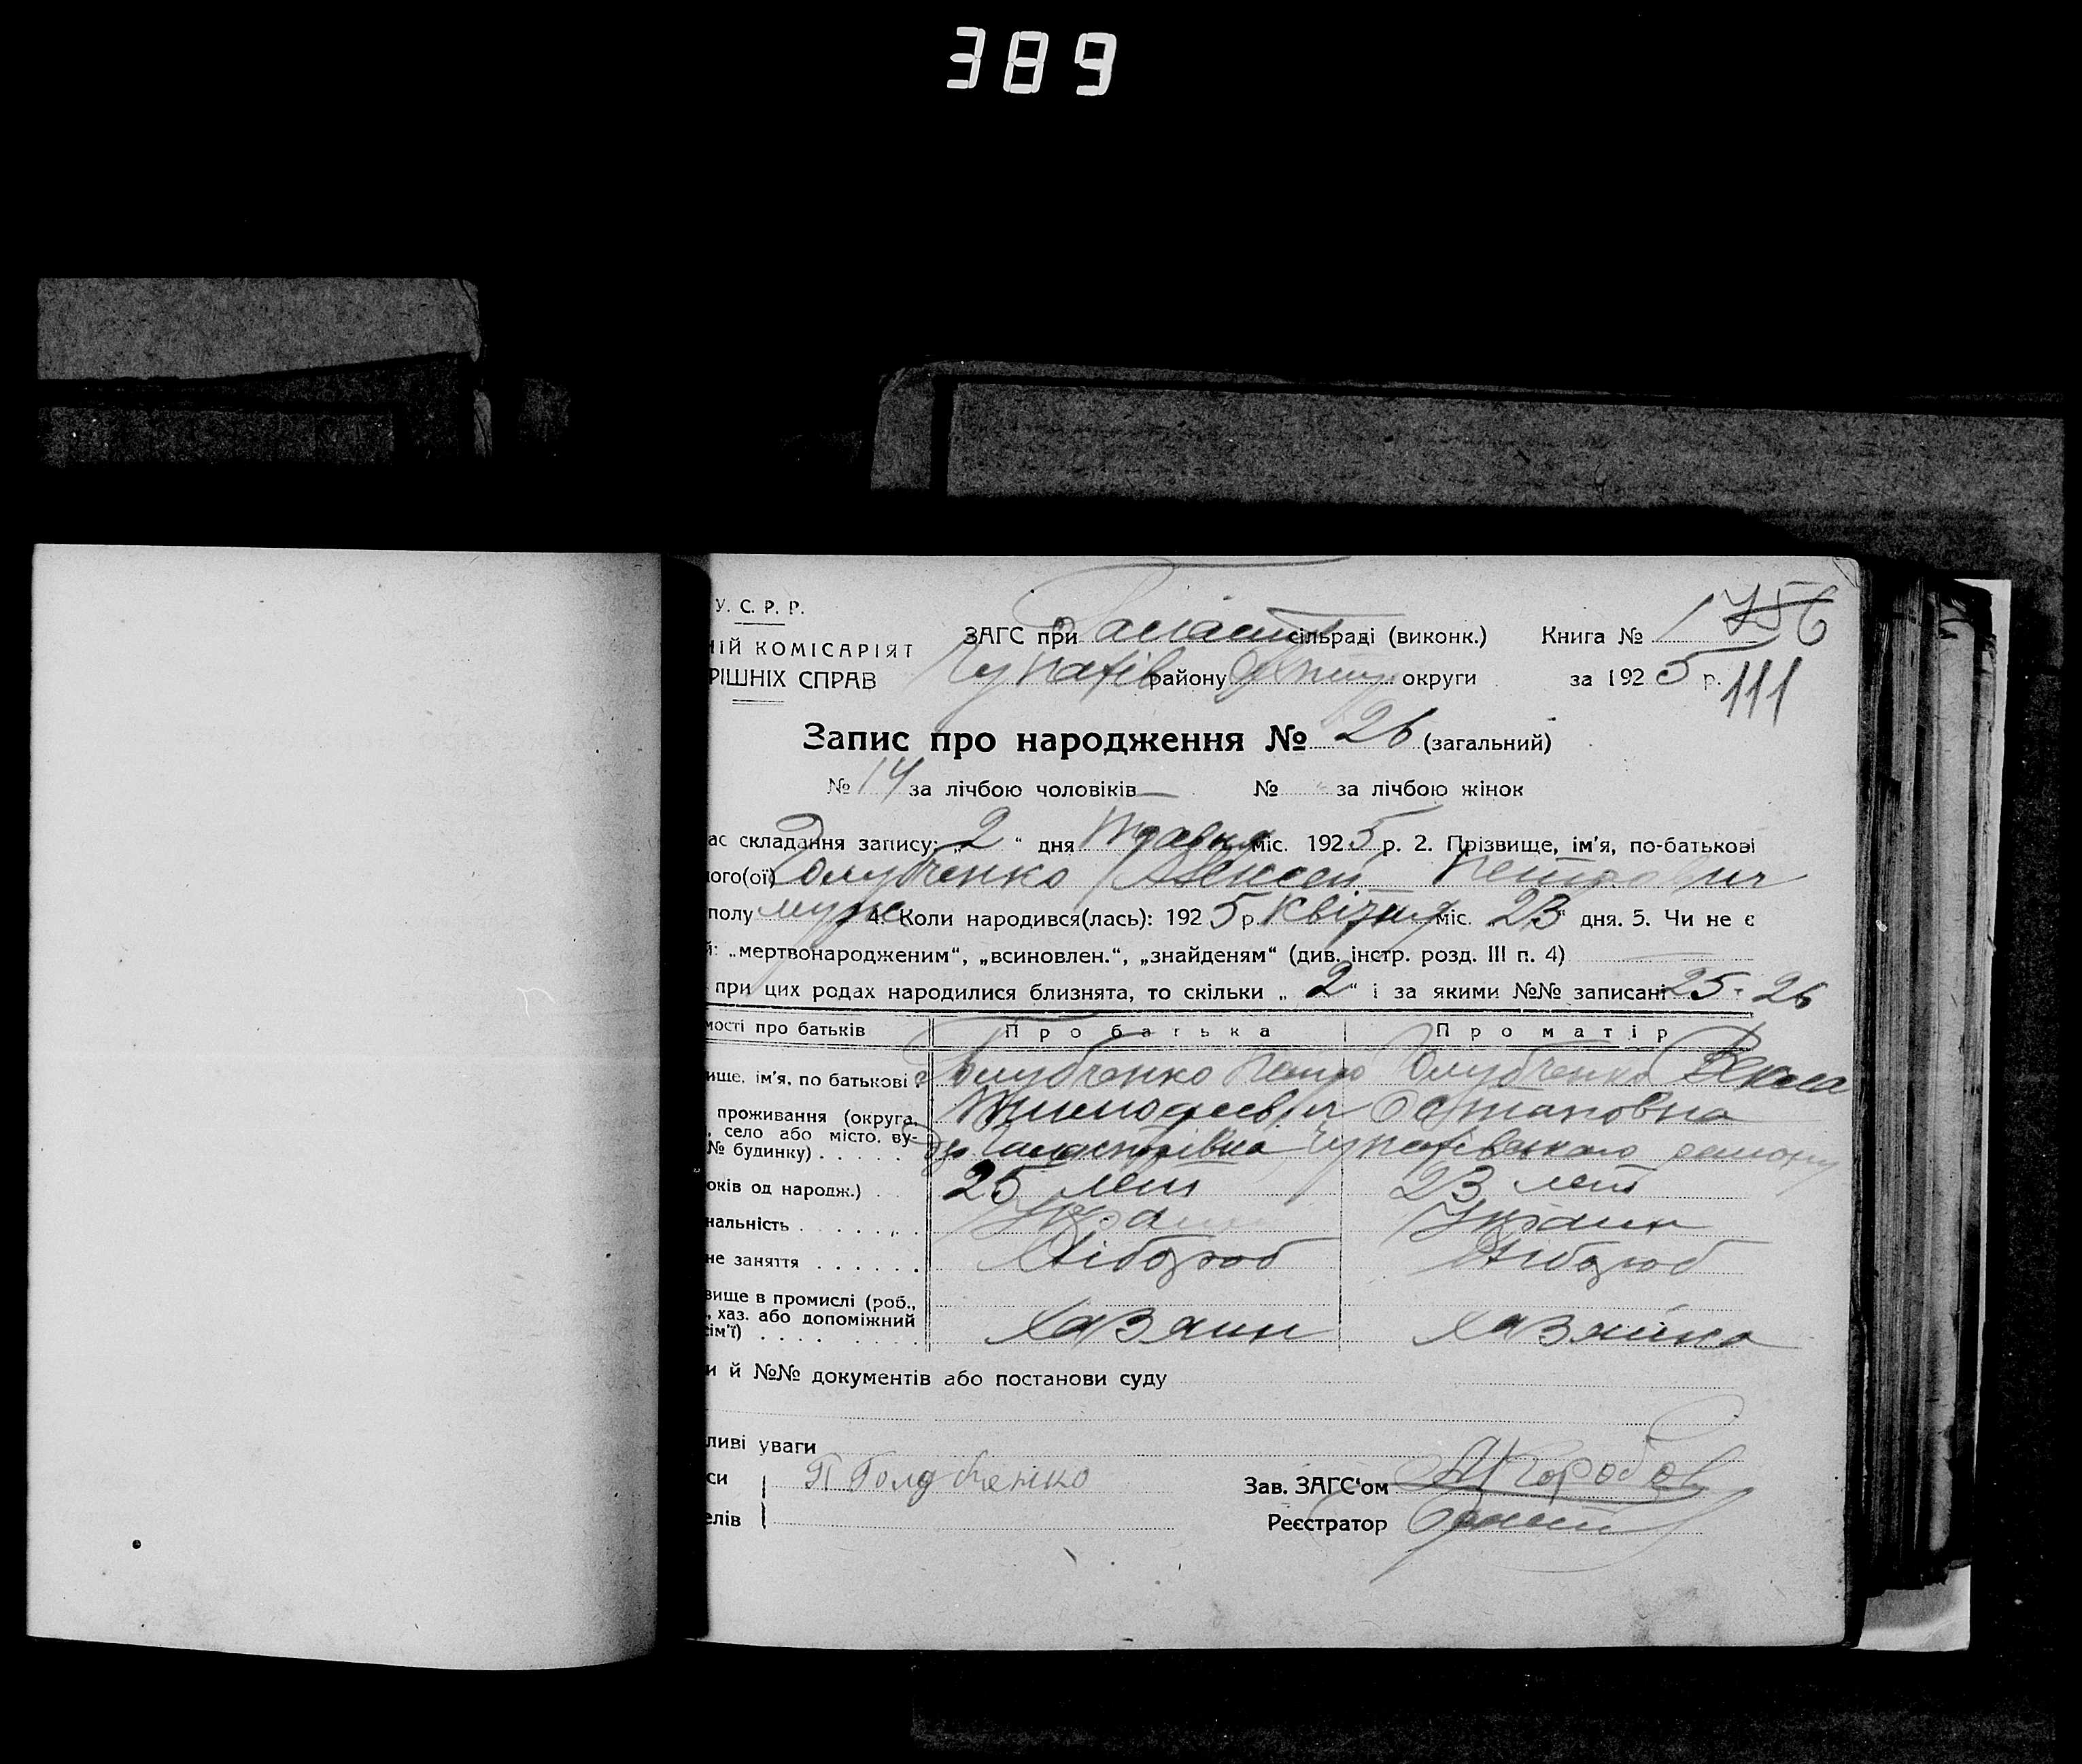 389
У. С. Р. Р.
НІЙ КОМІСАРІЯТ
РІШНІХ СПРАВ
ЗАГС при сільраді (виконк.) Книга № 1 756
району округи за 1925 р. 111
Запис про народження № 26 (загальний)
№ 14 за лічбою чоловіків — № за лічбою жінок
ас складання запису: „2“ дня травня міс. 1925 р. 2. Прізвище, ім’я, по-батькові
ого(ої) Голубченко Алексей Петрович
полу муж. 4. Коли народився(лась): 1925 р. квітня міс. 23 дня. 5. Чи не є
й: „мертвонародженим“, „всиновлен.“, „знайденям“ (див. інстр. розд. III п. 4)
при цих родах народилися близнята, то скільки „2“ і за якими №№ записані 25-26
мості про батьків Про батька Про матір
ище, ім’я, по батькові Голубченко Петро Голубченко Векла
Тимофеевич Остаповна
проживання (округа,
, село або місто, ву-
№ будинку) . . . . району
оків од народж.) . 25 лет 23 лет
нальність . . . . . Украин Украин
не заняття . . . . . . Хібороб Хібороб
вище в промислі (роб.,
, хаз. або допоміжний
сім’ї) . . . . Хазяин Хазяйка
и й №№ документів або постанови суду
ливі уваги
си П Голубченко Зав. ЗАГС‘ом
елів Реєстратор